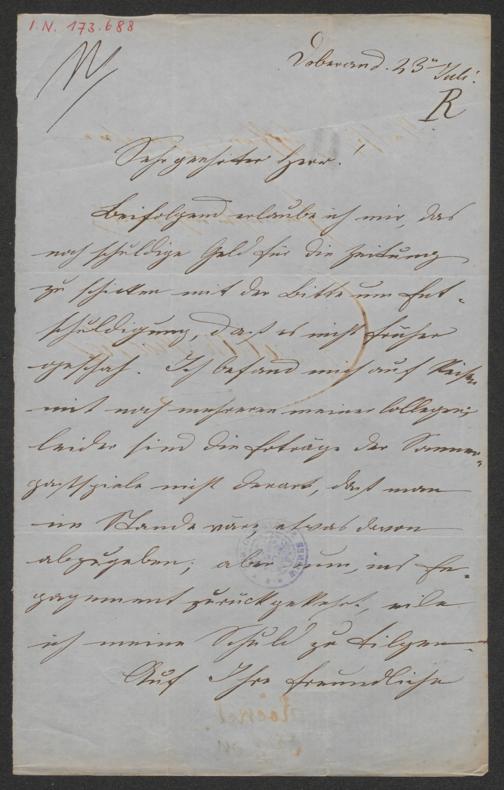 I.N. 173.688
Doberand. 23ten Juli.
R
Sehrgeehrter Herr!
Beifolgend erlaube ich mir, das
noch schuldige Geld für die Zeitung
zu schicken mit der Bitte um Ent-
schuldigung, daß es nicht früher
geschah. Ich befand mich auf Reisen
mit noch mehreren meiner Collegen;
leider sind die Erträge der Sommer-
gastspiele nicht derart, daß man
im Stande wäre, etwas davon
abzugeben; aber nun, ins En-
gagement zurückgekehrt, eile
ich meine Schuld zu tilgen.
Auf Ihre freundliche